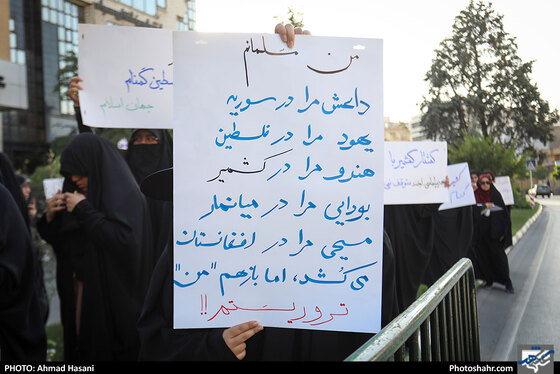 من مسلمانم
داعش مرا در سوریه
یهود مرا در فلسطین
هندو مرا در کشمیر
بودایی مرا در میانمار
مسیحی مرا در افغانستان
می کُشد، اما بازهم "من"
تروریستم!!
فلسطین گمنام
جهان اسلام
کشتار کشمیریا
متوقف
PHOTO: Ahmad Hasani
Photoshahr.com